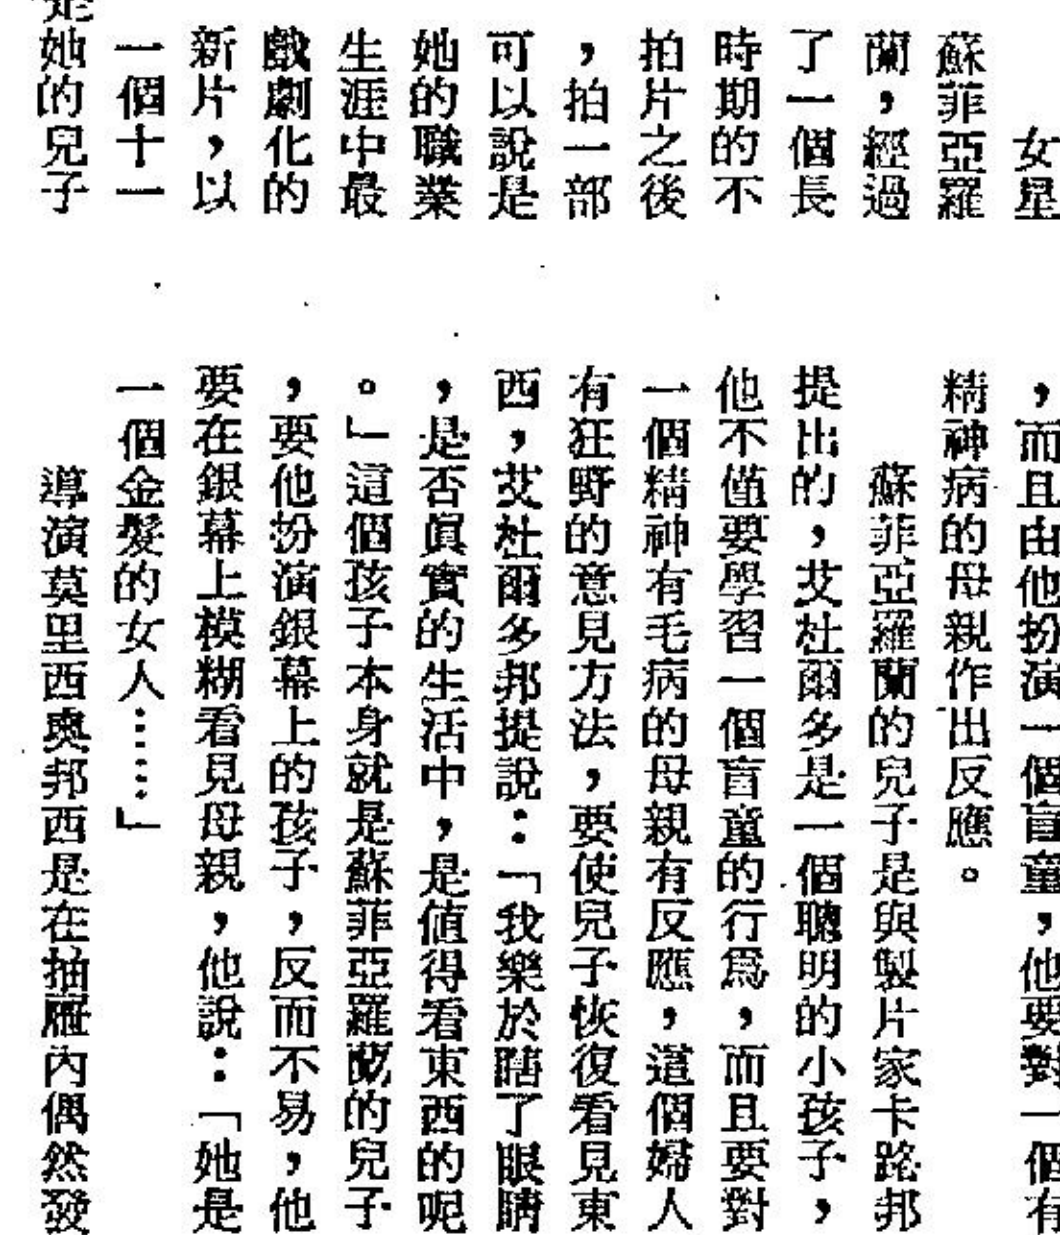 女星
蘇菲亞羅
蘭，經過
了一個長
時期的不
拍片之後
，拍一部
可以說是
她的職業
生涯中最
戲劇化的
新片，以
一個十一
她的兒子
，而且由他扮演一個盲童，他要對一個有
精神病的母親作出反應。
蘇菲亞羅蘭的兒子是與製片家卡路邦
提出的，艾杜爾多是一個聰明的小孩子，
他不僅要學習一個盲童的行爲，而且要對
一個精神有毛病的母親有反應，這個婦人
有狂野的意見方法，要使兒子恢復看見東
西，艾杜爾多邦提說：「我樂於瞎了眼睛
，是否眞實的生活中，是値得看東西的呢
。」這個孩子本身就是蘇菲亞羅蘭的兒子
，要他扮演銀幕上的孩子，反而不易，他
要在銀幕上模糊看見母親，他說：「她是
一個金髮的女人……」
導演莫里西奧邦西是在抽屜內偶然發